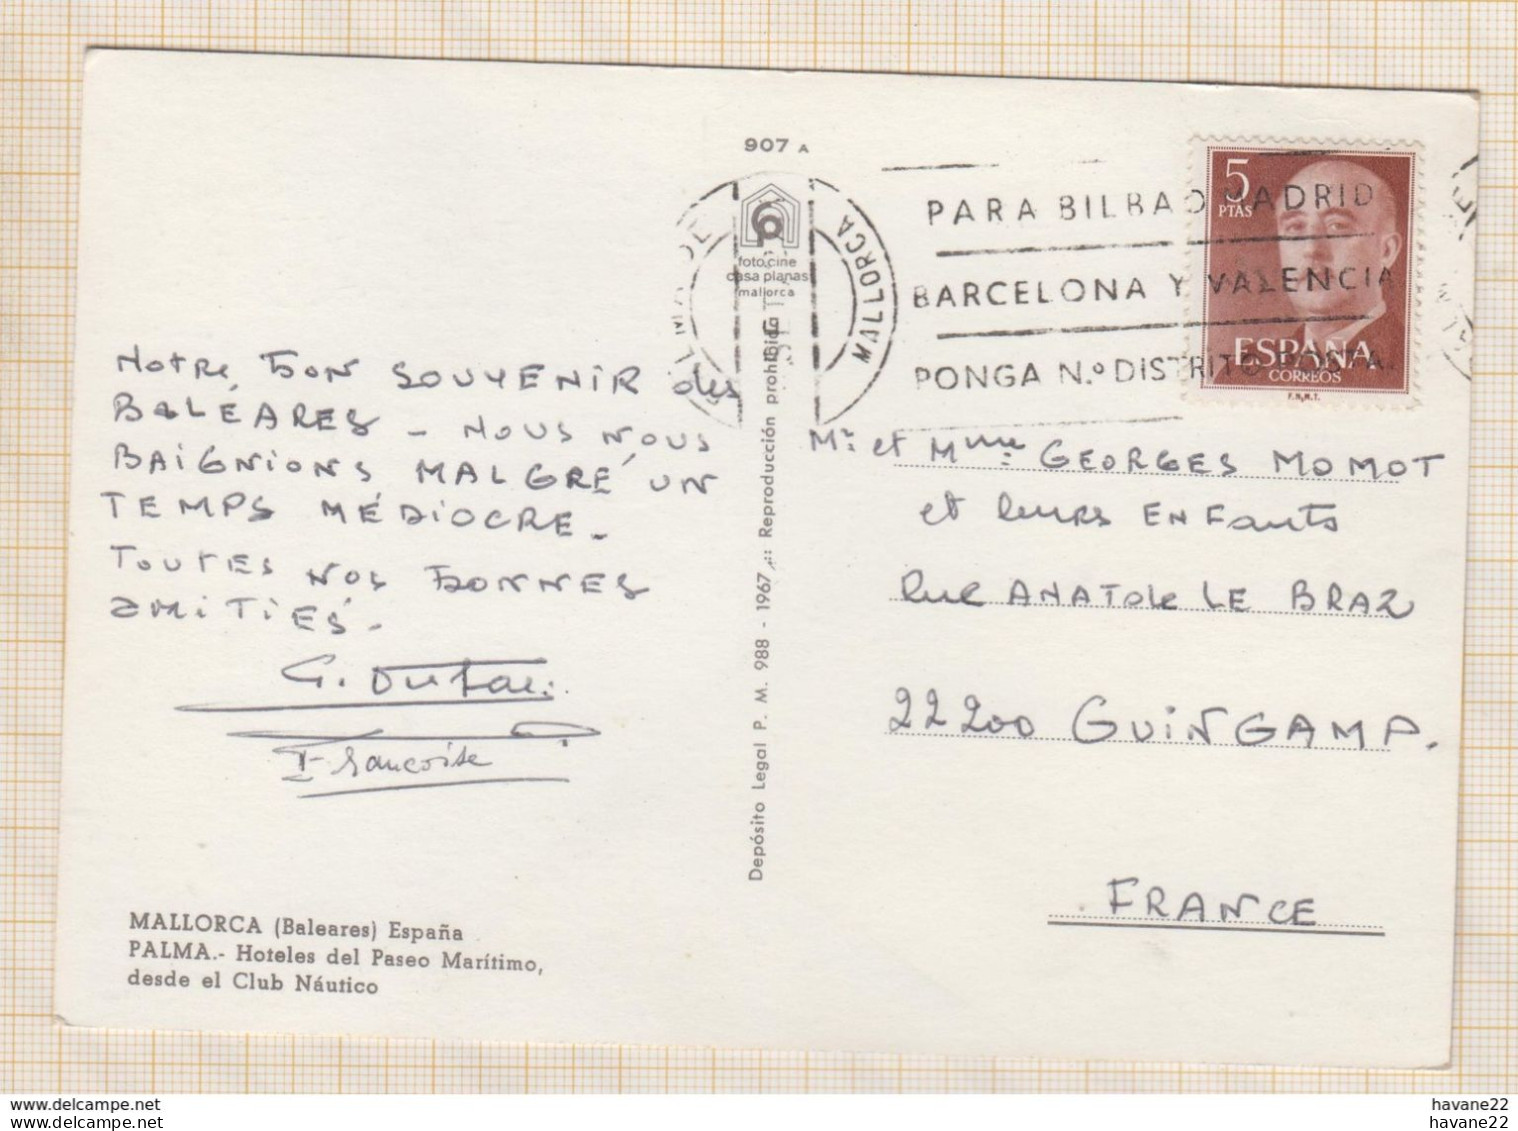 907 A
PALMA DE
MALLORCA
foto cine
casa planas
mallorca
PARA BILBAO MADRID
BARCELONA Y VALENCIA
PONGA N.º DISTRITO POSTAL
5
PTAS
ESPAÑA
CORREOS
F.N.M.T.
Notre bon souvenir des
Baléares - Nous nous
baignions malgré un
temps médiocre.
Toutes nos bonnes
amitiés.
Françoise
Depósito Legal P. M. 988 - 1967 .:: Reproducción prohibida
Mr. et Mme GEORGES MOMOT
et leurs Enfants
rue ANATOLE LE BRAZ
22200 GUINGAMP.
FRANCE
MALLORCA (Baleares) España
PALMA.- Hoteles del Paseo Marítimo,
desde el Club Náutico
www.delcampe.net
www.delcampe.net
havane22
havane22